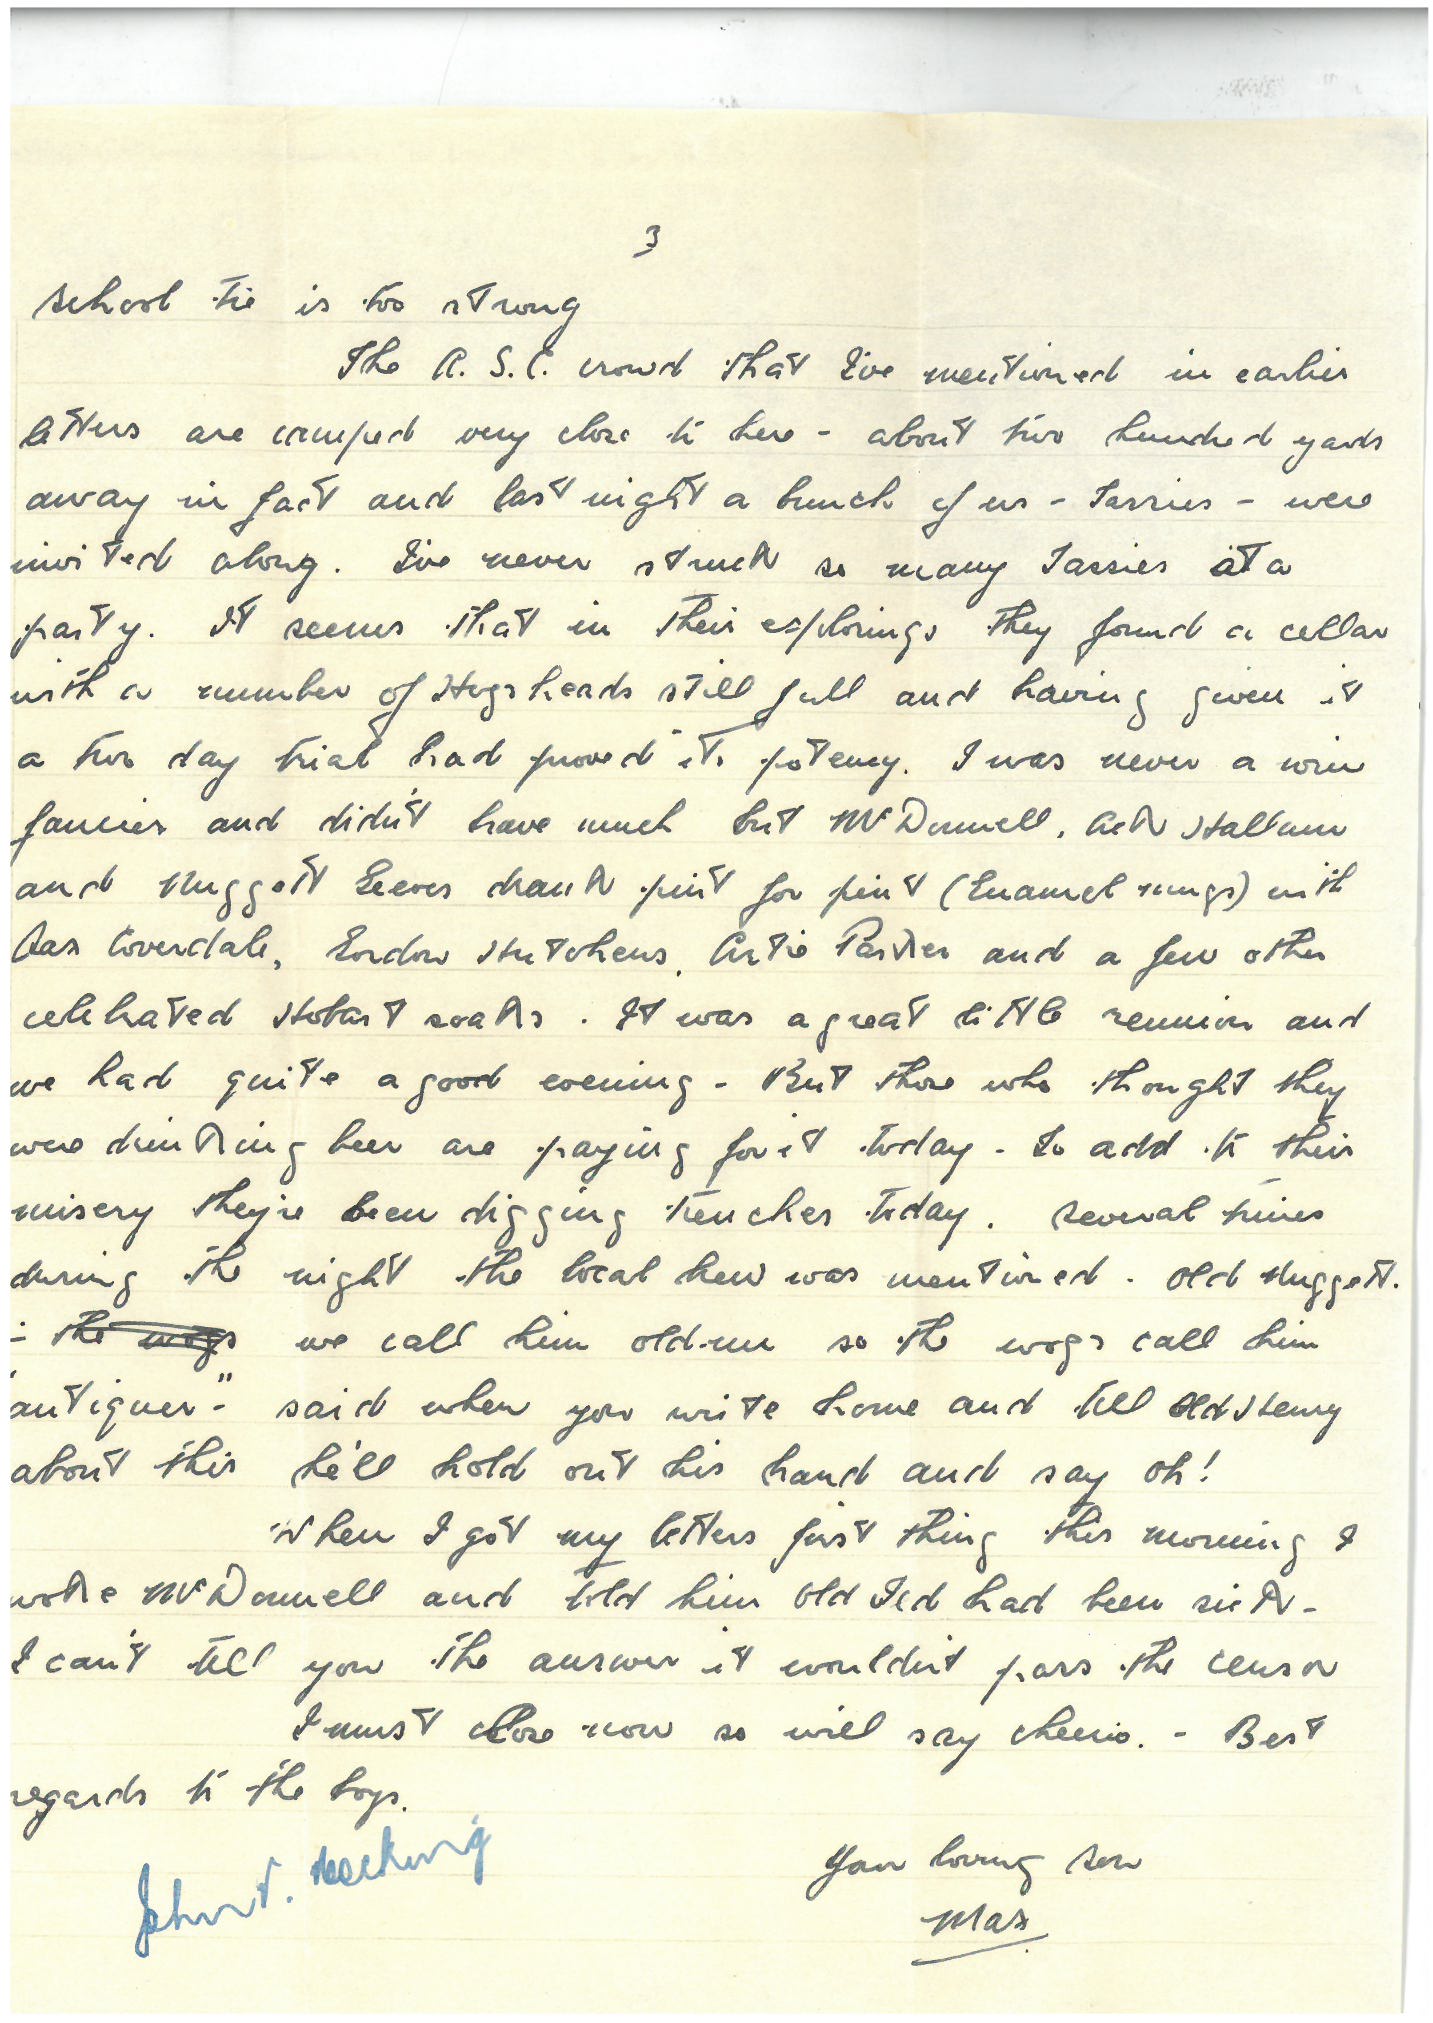 3
school tie is too strong
The A.S.C. crowd that I've mentioned in earlier
letters are camped very close to here - about two hundred yards
away in fact and last night a bunch of us - Tassies - were
invited along. I've never struck so many Tassies at a
party. It seems that in their explorings they found a cellar
with a number of Hogsheads still full and having given it
a two day trial had proved its potency. I was never a wine
fancier and didn't have much but McDonnell, Ack Hallam
and Nuggett Geeves drank pint for pint (Enamel mugs) with
Coverdale, Gordon Hutchens, Artie Parker and a few other
celebrated Hobart soaks. It was a great little reunion and
we had quite a good evening - But those who thought they
were drinking beer are paying for it today - To add to their
misery they're been digging trenches today. Several times
during the night the local brew was mentioned. Old Nuggett.
- the wogs we call him old-un so the wogs call him
"antiquer" - said when you write home and tell old Henry
about this he'll hold out his hand and say oh!
When I got my letters first thing this morning I
woke McDonnell and told him old Ted had been sick -
I can't tell you the answer it wouldn't pass the censor
I must close now so will say cheerio. - Best
regards to the boys.
Your loving son
Max
John